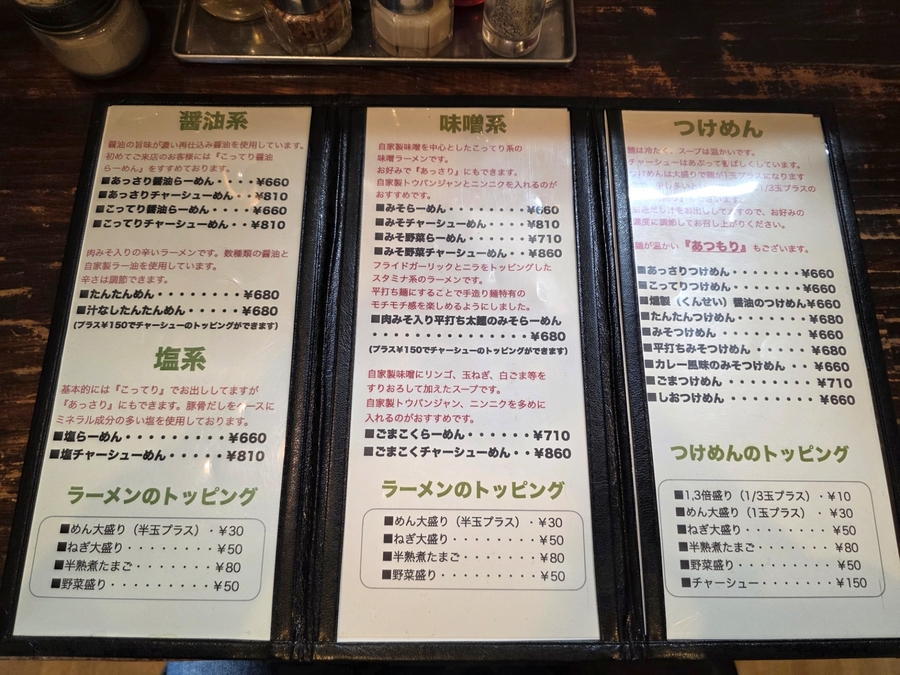 醤油系
醤油の旨味が濃い再仕込み醤油を使用しています。
初めてご来店のお客様には『こってり醤油
らーめん』をすすめております。
■あっさり醤油らーめん・・・・¥660
■あっさりチャーシューめん・・¥810
■こってり醤油らーめん・・・・¥660
■こってりチャーシューめん・・¥810
肉みそ入りの辛いラーメンです。数種類の醤油と
自家製ラー油を使用しています。
辛さは調節できます。
■たんたんめん・・・・・・・・¥680
■汁なしたんたんめん・・・・・¥680
(プラス¥150でチャーシューのトッピングができます)
塩系
基本的には『こってり』でお出ししてますが
『あっさり』にもできます。豚骨だしをベースに
ミネラル成分の多い塩を使用しております。
■塩らーめん・・・・・・・¥660
■塩チャーシューめん・・・・¥810
ラーメンのトッピング
■めん大盛り（半玉プラス）・¥30
■ねぎ大盛り・・・・・・・・¥50
■半熟煮たまご・・・・・・・¥80
■野菜盛り・・・・・・・・・¥50
味噌系
自家製味噌を中心としたこってり系の
味噌ラーメンです。
お好みで『あっさり』にもできます。
自家製トウバンジャンとニンニクを入れるのが
おすすめです。
■みそらーめん・・・・・・・・¥660
■みそチャーシューめん・・・・¥810
■みそ野菜らーめん・・・・・・¥710
■みそ野菜チャーシューめん・・¥860
フライドガーリックとニラをトッピングした
スタミナ系のラーメンです。
平打ち麺にすることで手造り麺特有の
モチモチ感を楽しめるようにしました。
■肉みそ入り平打ち太麺のみそらーめん
・・・・・・・・・・・・・・¥680
(プラス¥150でチャーシューのトッピングができます)
自家製味噌にリンゴ、玉ねぎ、白ごま等を
すりおろして加えたスープです。
自家製トウバンジャン、ニンニクを多めに
入れるのがおすすめです。
■ごまこくらーめん・・・・・・¥710
■ごまこくチャーシューめん・・¥860
ラーメンのトッピング
■めん大盛り（半玉プラス）・¥30
■ねぎ大盛り・・・・・・・・¥50
■半熟煮たまご・・・・・・・¥80
■野菜盛り・・・・・・・・・¥50
つけめん
麺は冷たく、スープは温かいです。
チャーシューはあぶって香ばしくしています。
つけめんは大盛りで麺が1玉プラスになります
1/3玉プラスの
ますので、お好みの
濃度に調節してお召し上がりください。
麺が温かい『あつもり』もございます。
■あっさりつけめん・・・・・・・¥660
■こってりつけめん・・・・・・・¥660
■燻製（くんせい）醤油のつけめん¥660
■たんたんつけめん・・・・・・・¥680
■みそつけめん・・・・・・・・・¥660
■平打ちみそつけめん・・・・・・¥680
■カレー風味のみそつけめん・・¥660
■ごまつけめん・・・・・・・・・¥710
■しおつけめん・・・・・・・・・¥660
つけめんのトッピング
■1,3倍盛り（1/3玉プラス）・¥10
■めん大盛り（1玉プラス）・・¥30
■ねぎ大盛り・・・・・・・・¥50
■半熟煮たまご・・・・・・・¥80
■野菜盛り・・・・・・・・・¥50
■チャーシュー・・・・・・・¥150